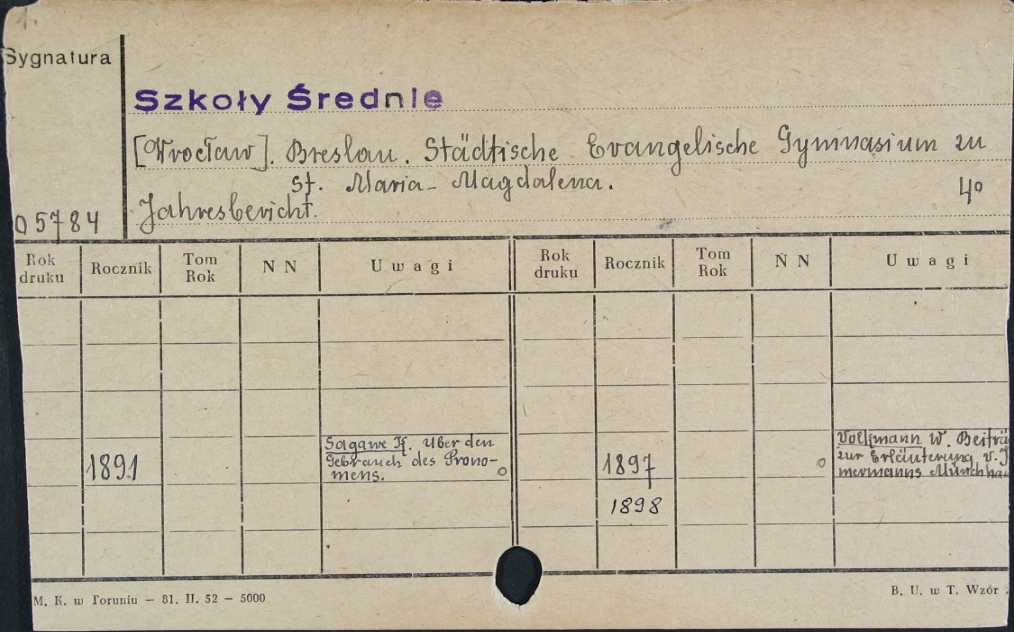 1.
Sygnatura
Szkoły Średnie
[Wrocław]. Breslau. Städtische Evangelische Gymnasium zu
St. Maria-Magdalena.
4o
05784
Jahresbericht.
Rok druku Rocznik Tom Rok N N Uwagi Rok druku Rocznik Tom Rok N N Uwagi
1891
Sagawe K. Über den
Gebrauch des Prono-
mens.
o
1897
o
Volkmann W. Beiträ
zur Erläuterung v. I
mermanns Münchhau
1898
M. K. w Toruniu — 81. II. 52 — 5000
B. U. w T. Wzór